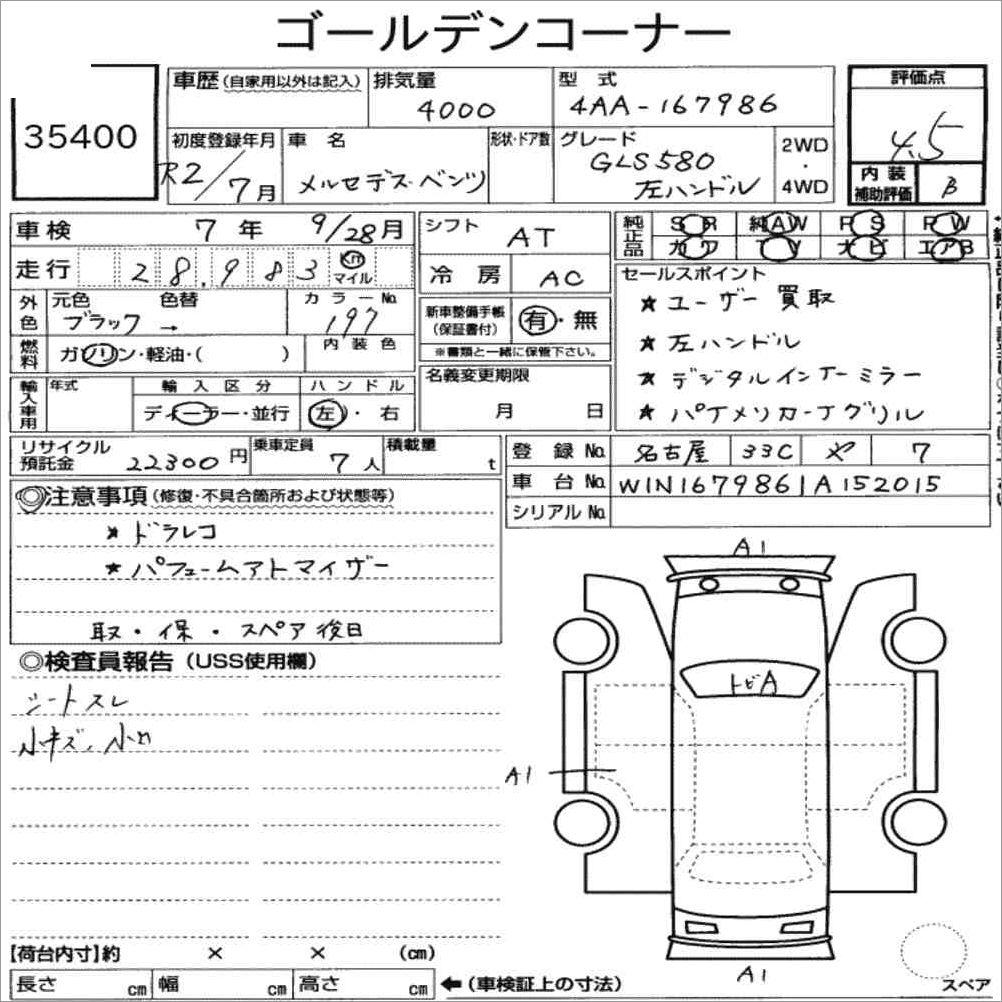 ゴールデンコーナー
35400
車歴(自家用以外は記入) 排気量 型式 評価点
4000 4AA-167986 4.5
初度登録年月 車名 形状・ドア数 グレード 2WD・4WD
R2/7月 メルセデスベンツ GLS580 左ハンドル
内装補助評価 B
車検 7年 9/28月 シフト AT
純正品 SR 純AW PS PW
カワ TV ナビ エアB
走行 28,983 Km マイル 冷房 AC
セールスポイント
★ユーザー買取
★左ハンドル
★デジタルインナーミラー
★パナメリカーナグリル
外色 元色 色替 カラーNo.
ブラック → 197
新車整備手帳(保証書付) 有・無
※書類と一緒に保管下さい。
燃料 ガソリン・軽油・( ) 内装色
名義変更期限 月 日
輸入車用 年式 輸入区分 ハンドル
ディーラー・並行 左・右
リサイクル預託金 22300円 乗車定員 7人 積載量 t
登録No. 名古屋 33C や 7
車台No. W1N1679861A152015
シリアルNo.
◎注意事項(修復・不具合箇所および状態等)
★ドラレコ
★パフュームアトマイザー
取・保・スペア後日
◎検査員報告(USS使用欄)
シートスレ
小キズ、小凹
A1
トビA
A1
A1
【荷台内寸】約 × × (cm)
長さ cm 幅 cm 高さ cm ←(車検証上の寸法)
スペア